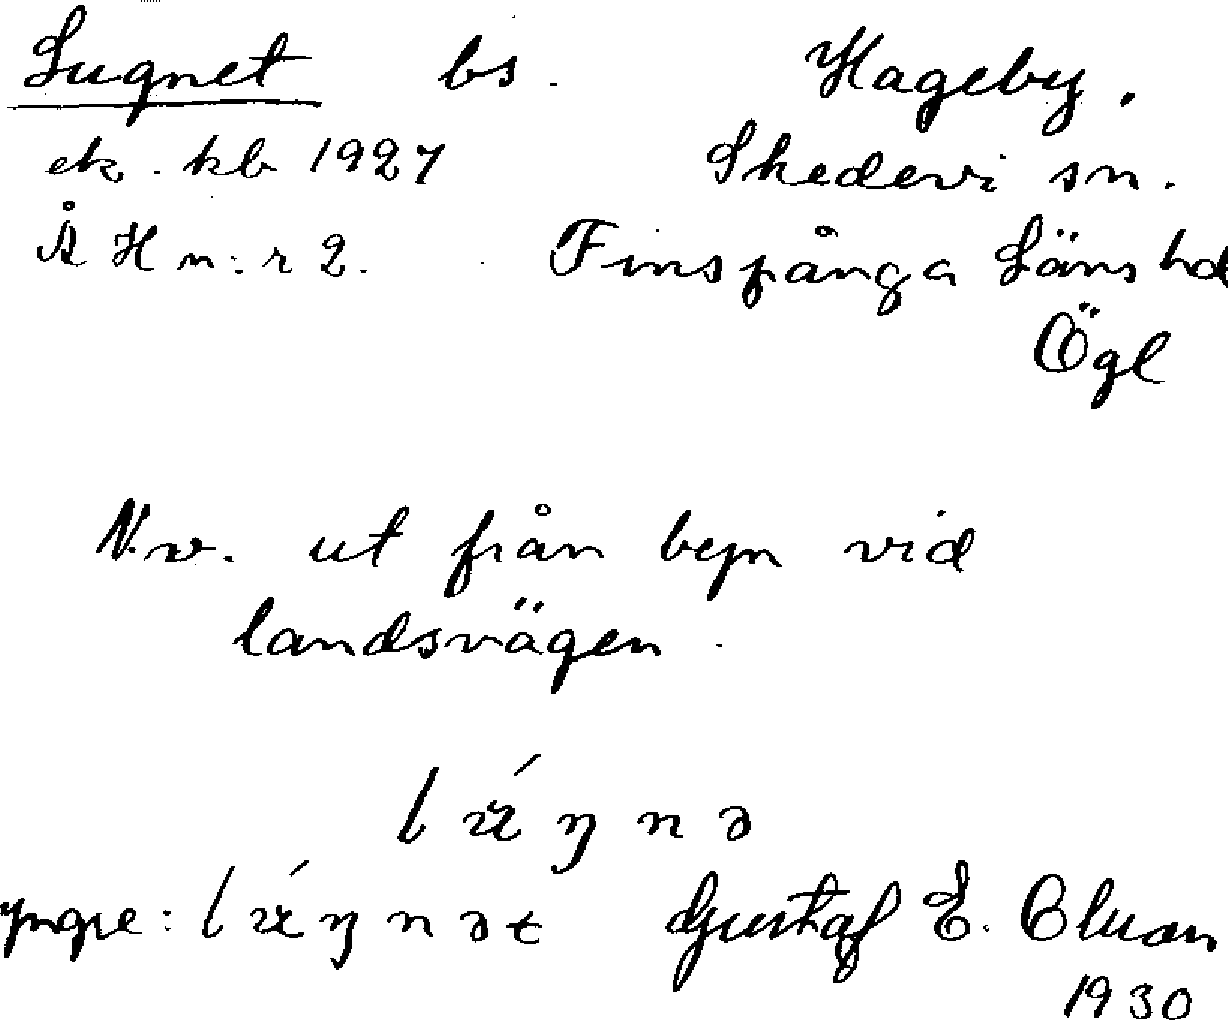 Lugnet bs. Hageby.
ek. kb 1927 Skedevi sn.
ÅH n:r 2. Finspånga Läns hd
Ögl
N.v. ut från byn vid
landsvägen.
yngre:
Gustaf E.
1930